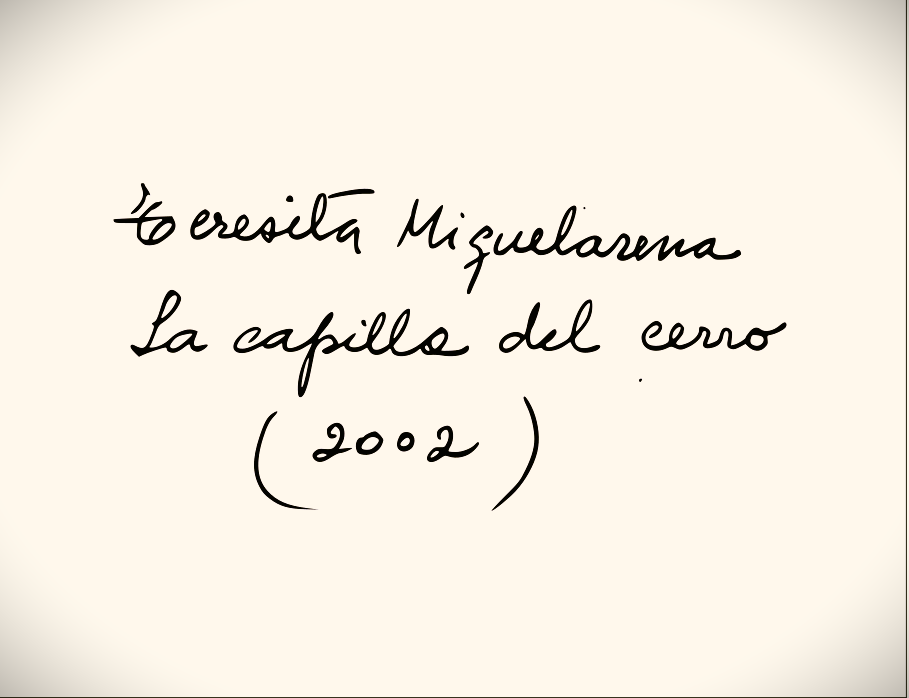 Teresita Miguelarena
La capilla del cerro
(2002)